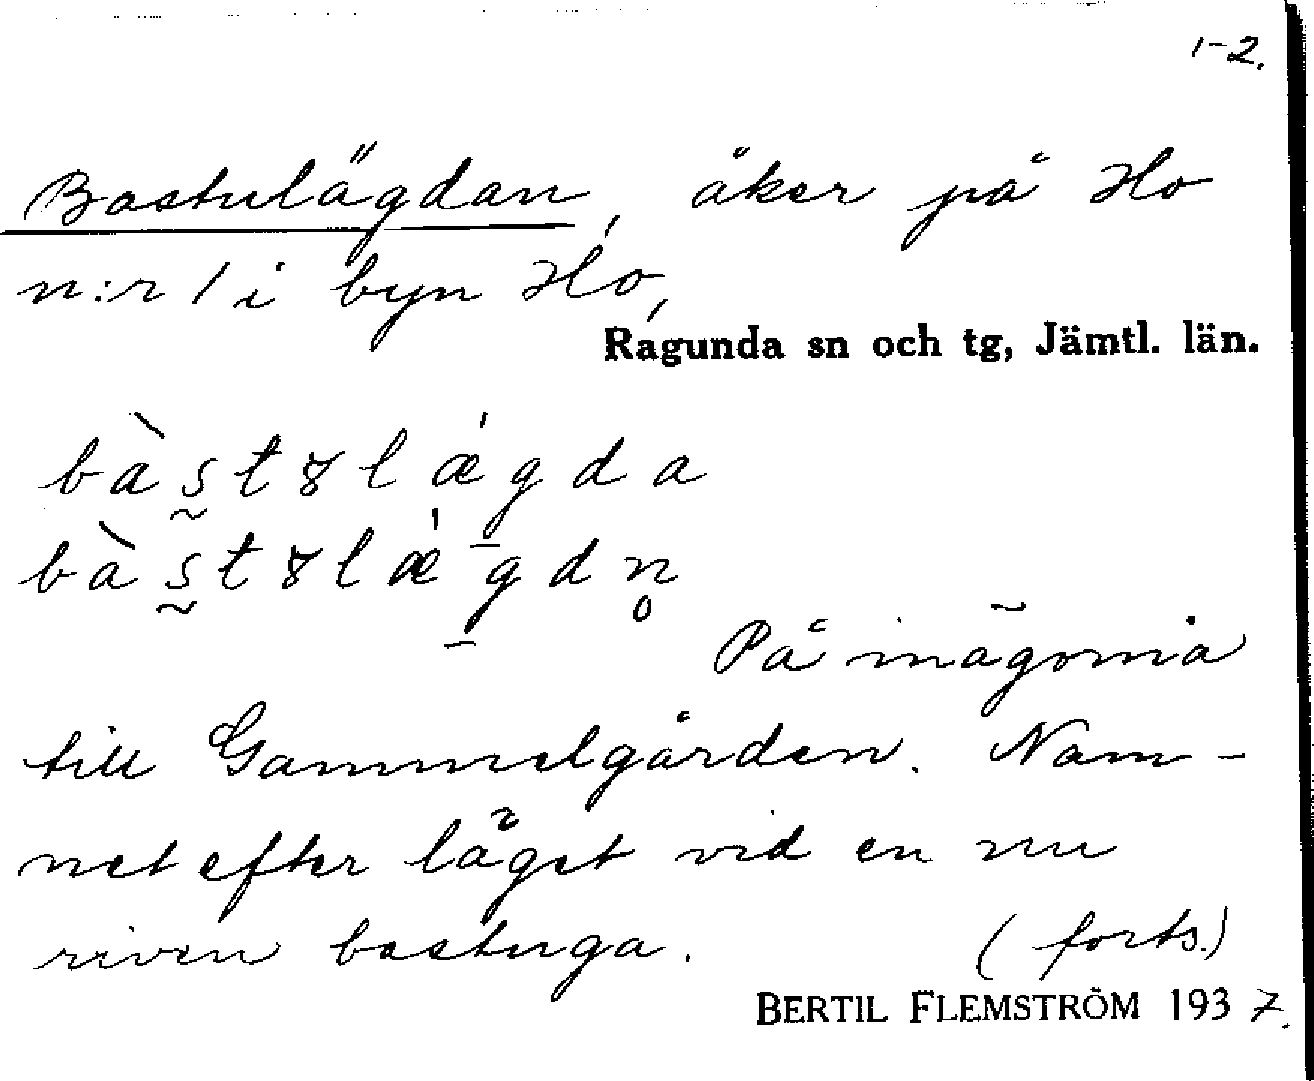 1-2.
Bastulägdan, åker på Ho
n:r 1 i byn Ho,
Ragunda sn och tg, Jämtl. län.
bàs̰tȣlǽgda
bàs̰tȣlǽg̱dn̥
På inägorna
till Gammelgården. Nam-
net efter läget vid en nu
riven bastuga. (forts.)
BERTIL FLEMSTRÖM 1937.